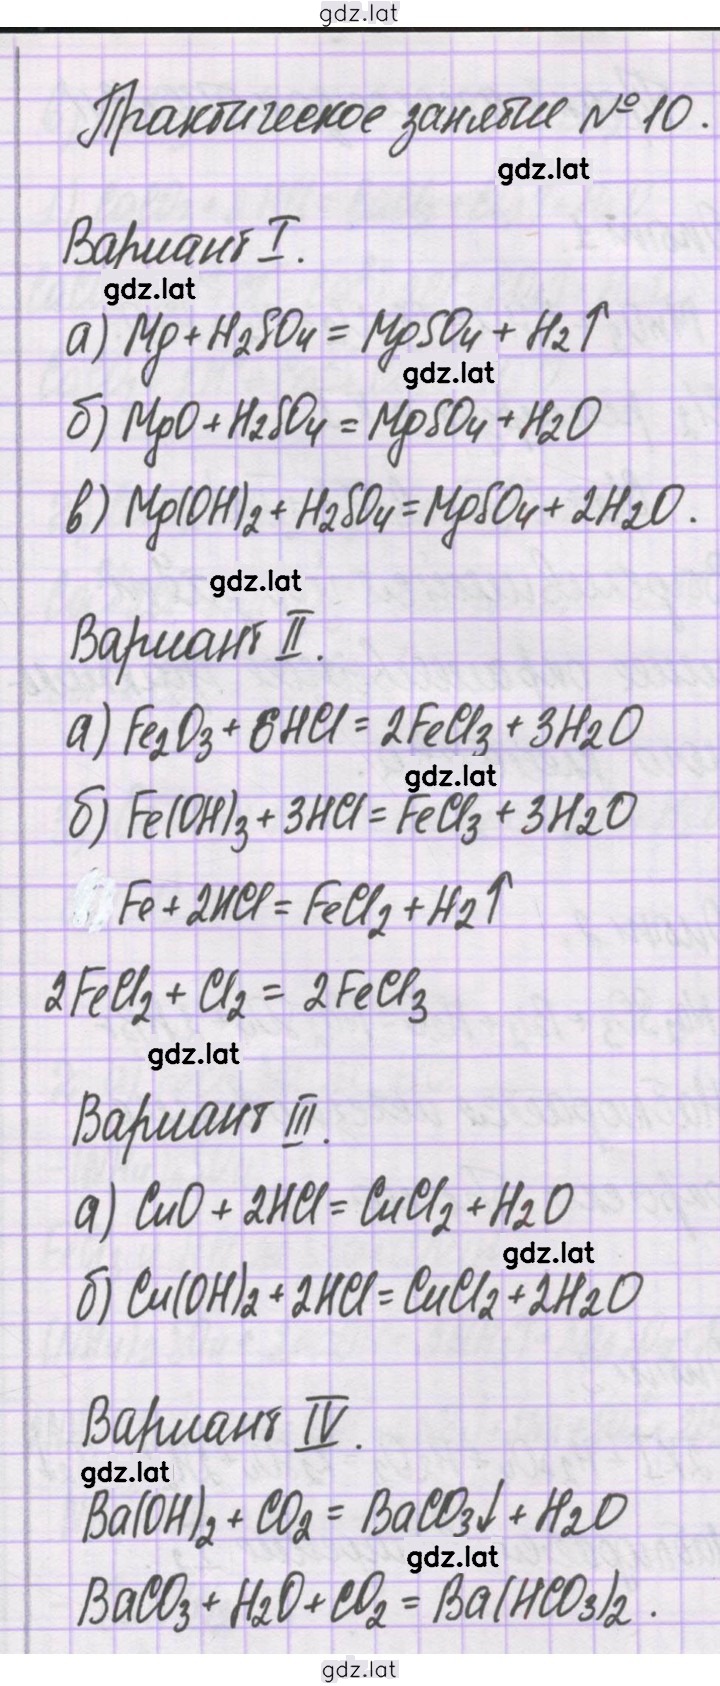 gdz.lat
Практическое занятие №10.
gdz.lat
Вариант I.
gdz.lat
а) Mg + H₂SO₄ = MgSO₄ + H₂↑
gdz.lat
б) MgO + H₂SO₄ = MgSO₄ + H₂O
в) Mg(OH)₂ + H₂SO₄ = MgSO₄ + 2H₂O.
gdz.lat
Вариант II.
а) Fe₂O₃ + 6HCl = 2FeCl₃ + 3H₂O
gdz.lat
б) Fe(OH)₃ + 3HCl = FeCl₃ + 3H₂O
Fe + 2HCl = FeCl₂ + H₂↑
2FeCl₂ + Cl₂ = 2FeCl₃
gdz.lat
Вариант III.
а) CuO + 2HCl = CuCl₂ + H₂O
gdz.lat
б) Cu(OH)₂ + 2HCl = CuCl₂ + 2H₂O
Вариант IV.
gdz.lat
Ba(OH)₂ + CO₂ = BaCO₃↓ + H₂O
gdz.lat
BaCO₃ + H₂O + CO₂ = Ba(HCO₃)₂.
gdz.lat